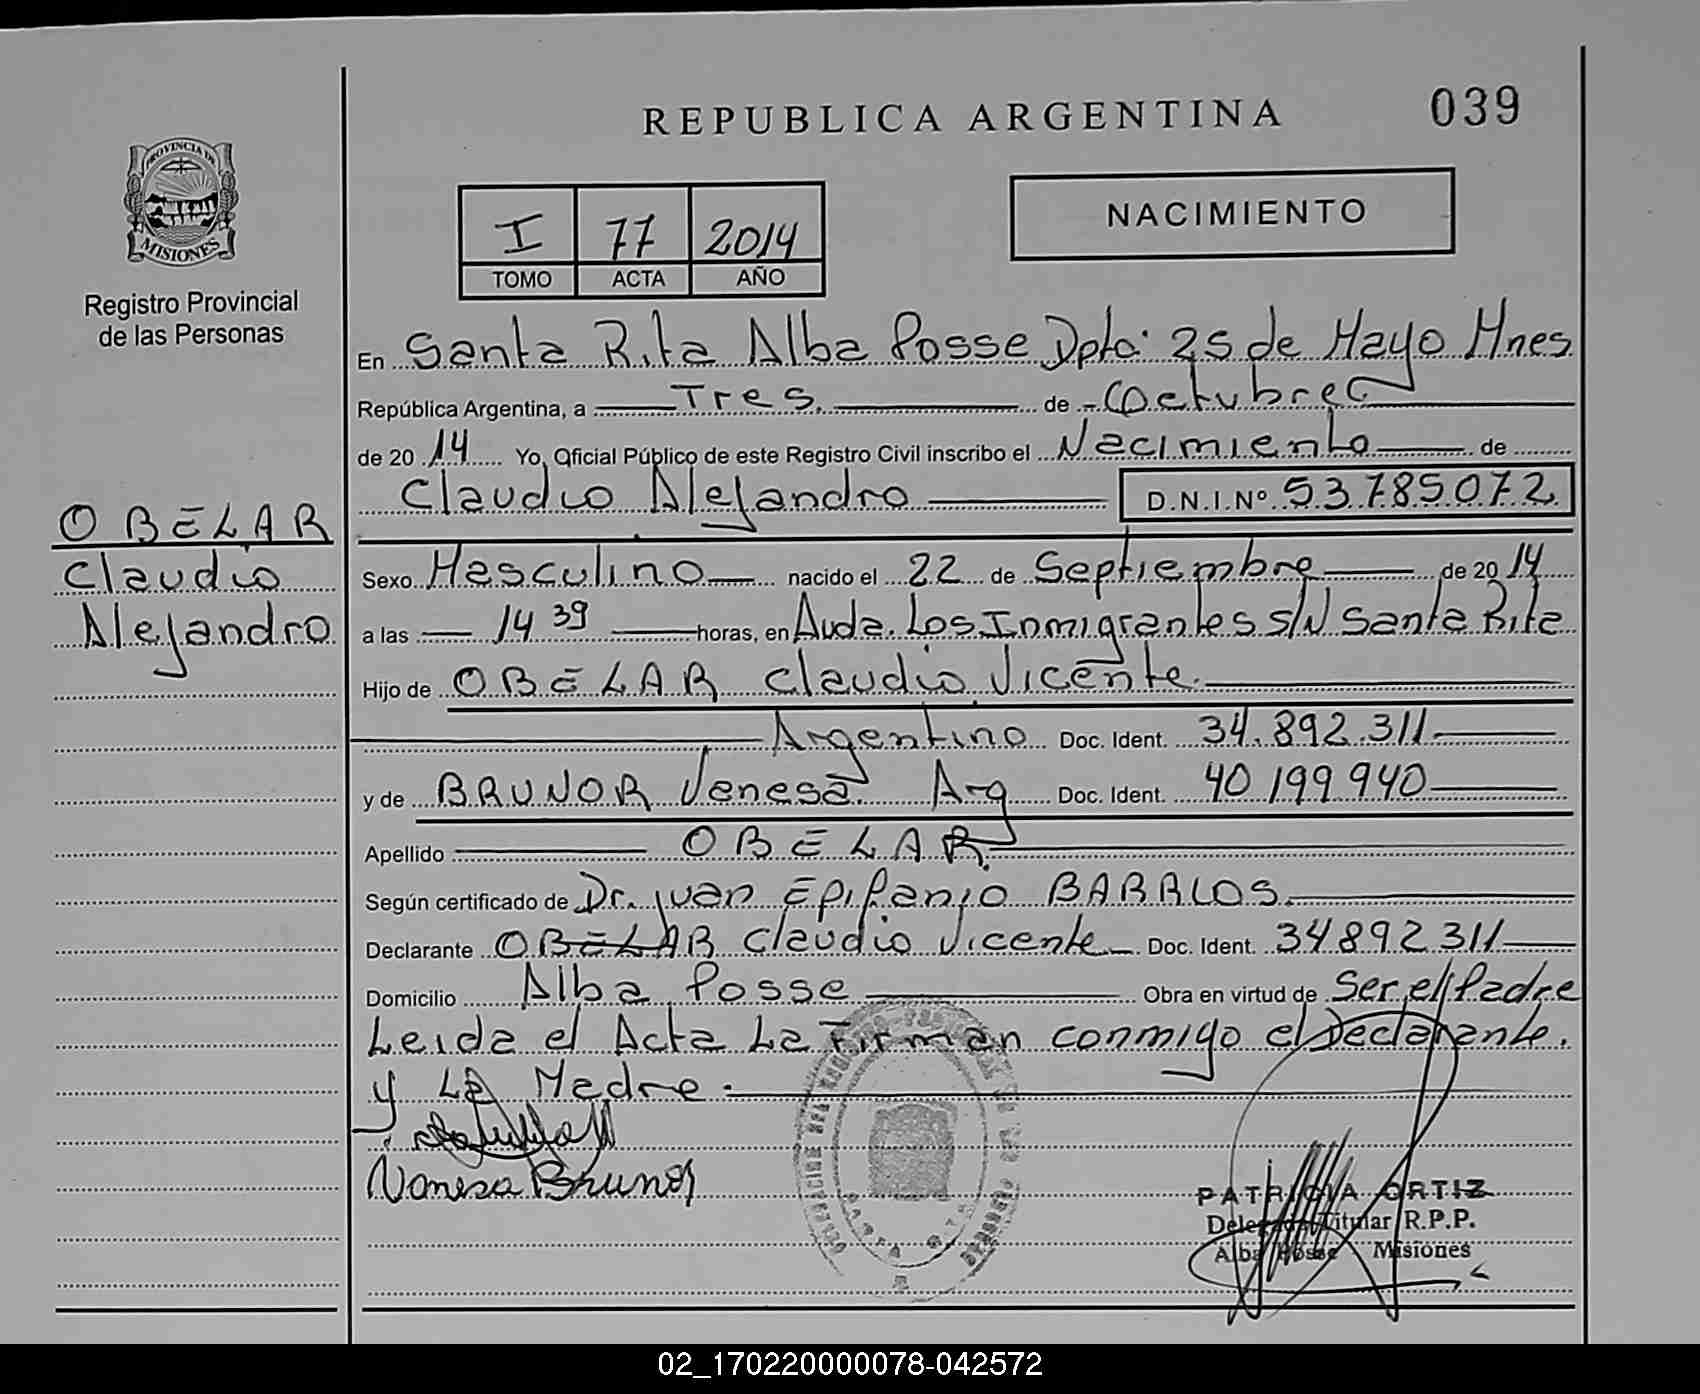 REPUBLICA ARGENTINA
039
PROVINCIA DE
MISIONES
Registro Provincial
de las Personas
I 77 2014
TOMO ACTA AÑO
NACIMIENTO
En Santa Rita Alba Posse Dpto: 25 de Mayo Mnes
República Argentina, a Tres. de Octubre
de 2014 Yo, Oficial Público de este Registro Civil inscribo el Nacimiento de
Claudio Alejandro D.N.I.Nº 53.785.072
OBELAR
Claudio
Alejandro
Sexo Masculino nacido el 22 de Septiembre de 2014
a las 14 39 horas, en Avda. Los Inmigrantes S/N Santa Rita
Hijo de OBELAR Claudio Vicente.
Argentino Doc. Ident. 34.892.311
y de BRUNOR Vanesa Arg Doc. Ident. 40 199 940
Apellido OBELAR.
Según certificado de Dr. Juan Epifanio BARRIOS.
Declarante OBELAR Claudio Vicente Doc. Ident. 34892311
Domicilio Alba Posse Obra en virtud de Ser el Padre
Leida el Acta La Firman conmigo el Declarante.
y La Madre.
Vanesa Brunor
PATRICIA ORTIZ
Delegada Titular R.P.P.
Alba Posse Misiones
02_170220000078-042572